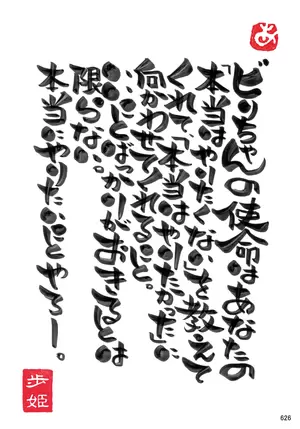 あ
ビンちゃんの使命はあなたの
「本当はやりたくない」を教えて
くれて、「本当はやりたかった」に
向かわせてくれること。
いいことばっかりがおきるとは
限らない。
本当にやりたいことやろー。
歩姫
626